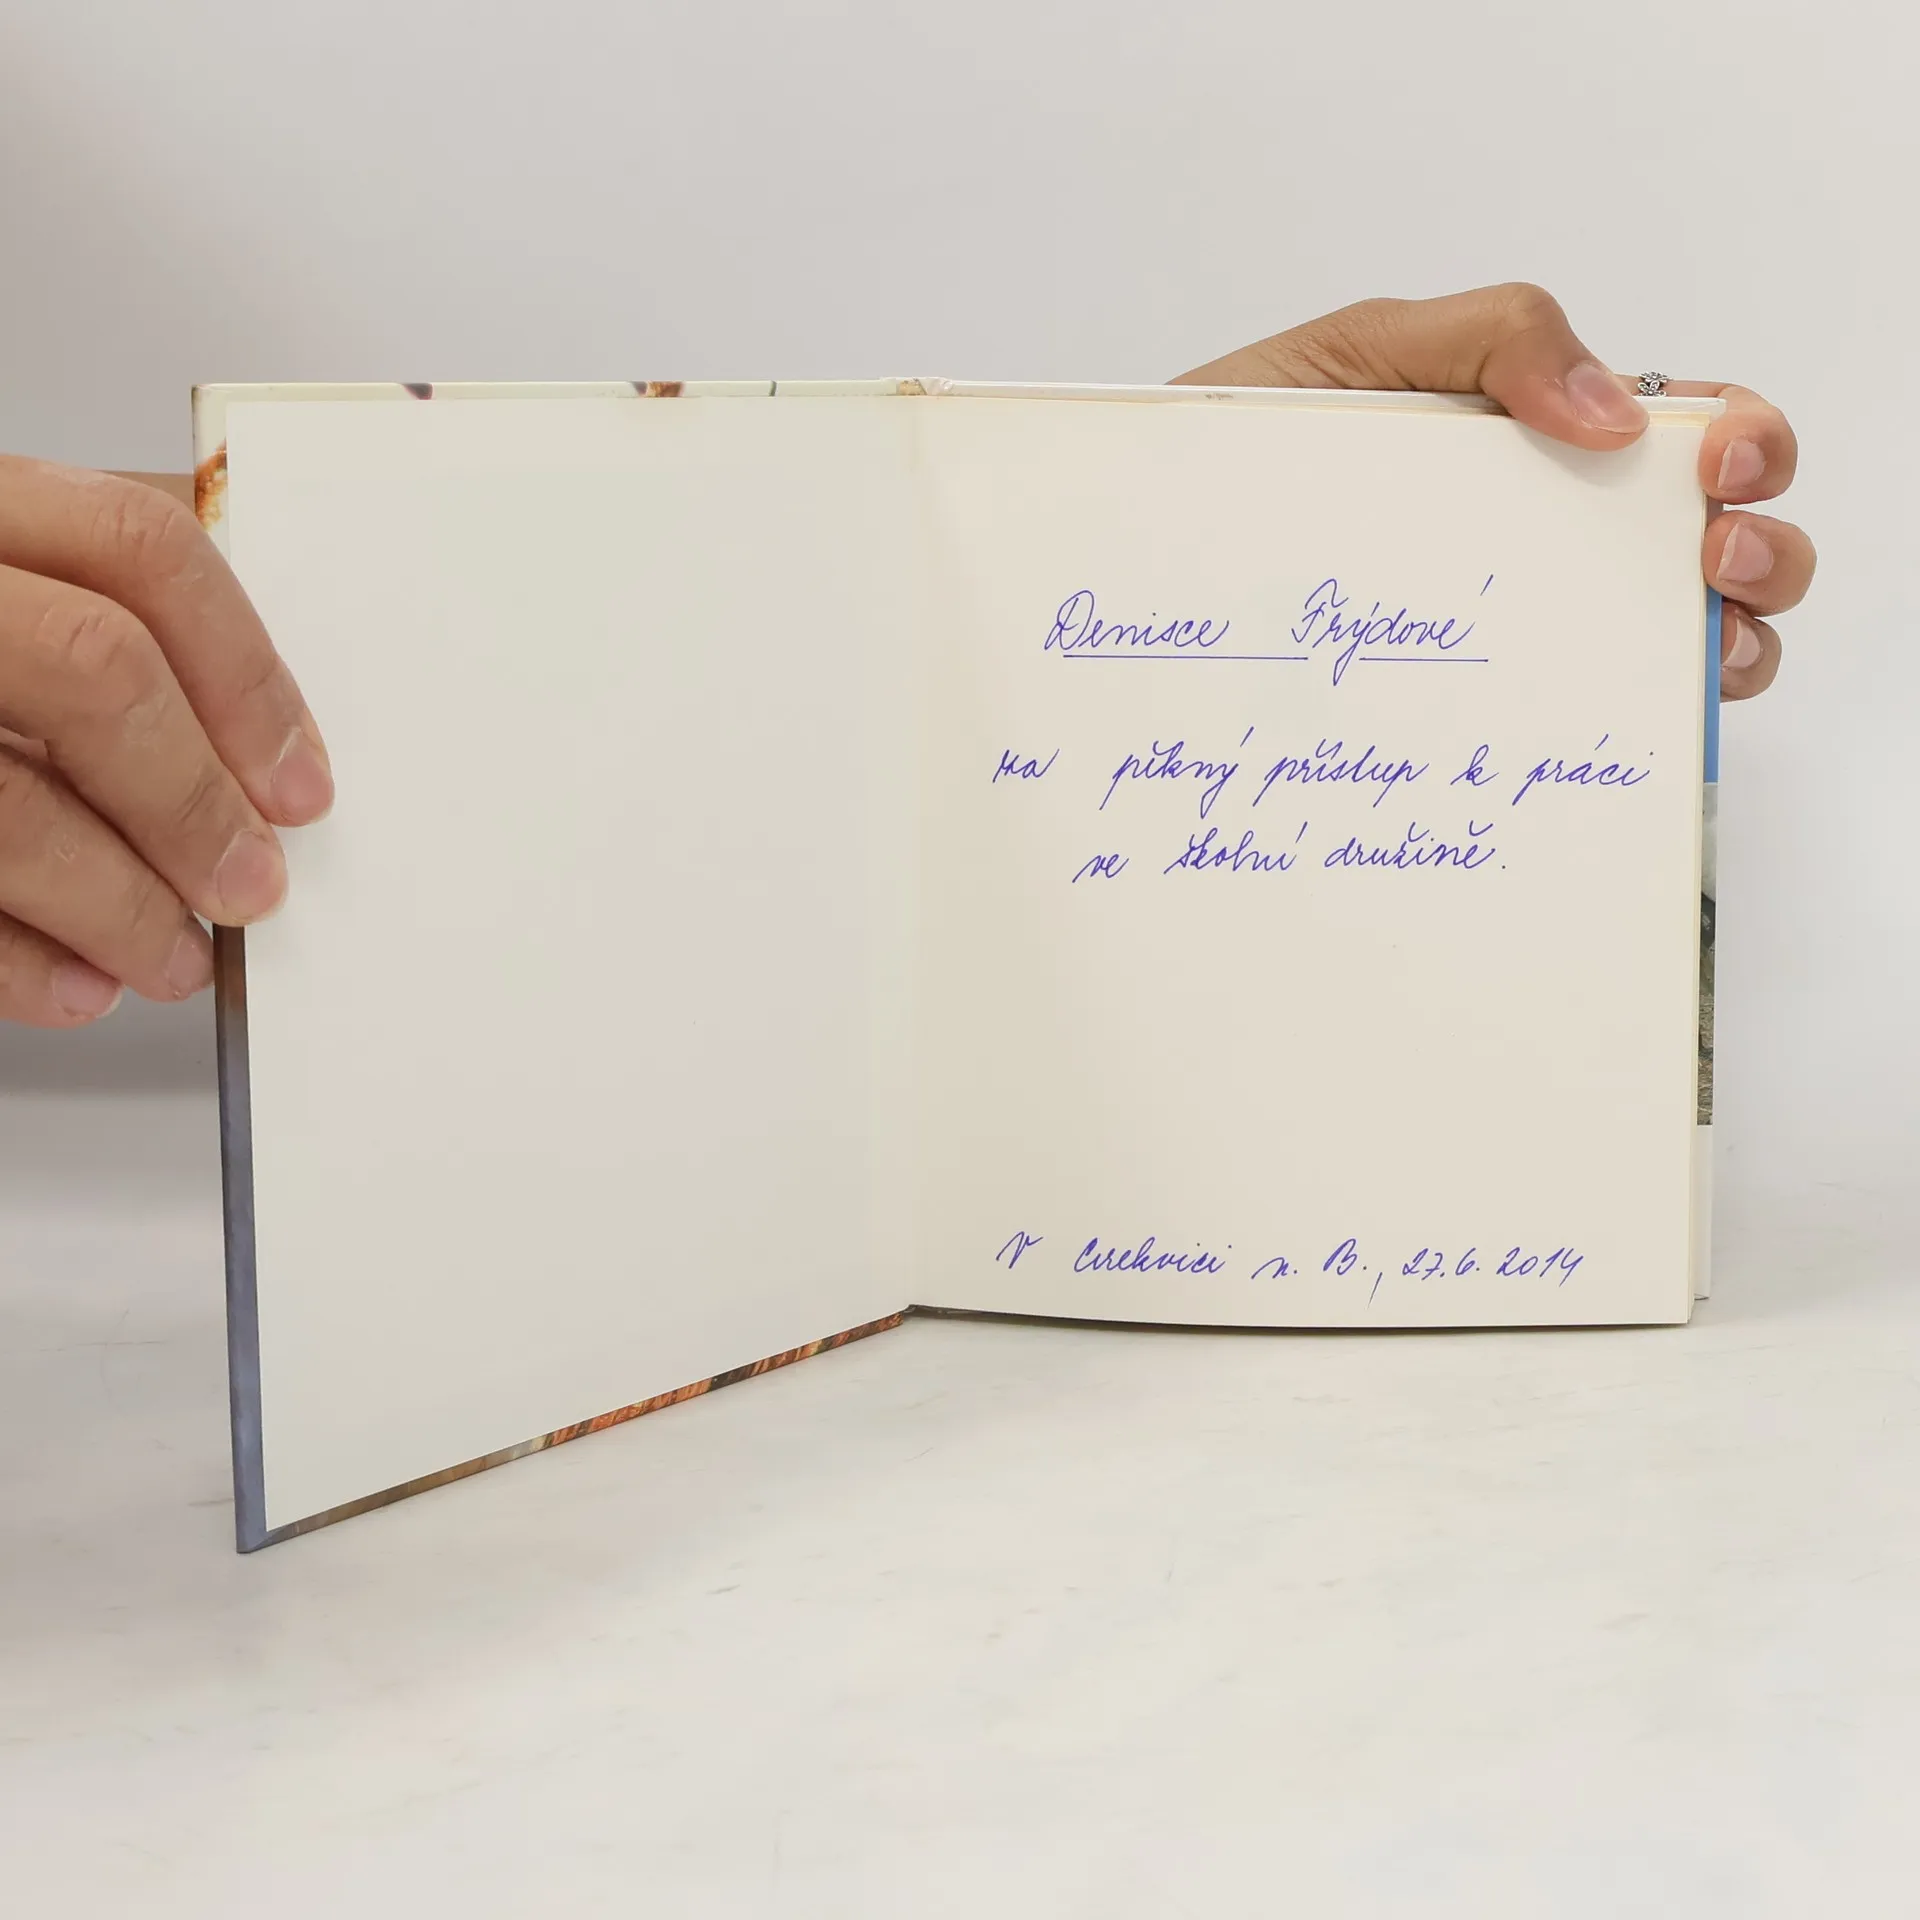 Denisce Frýdové
za pěkný přístup k práci
ve školní družině.
V Cerekvici n. B., 27.6. 2014